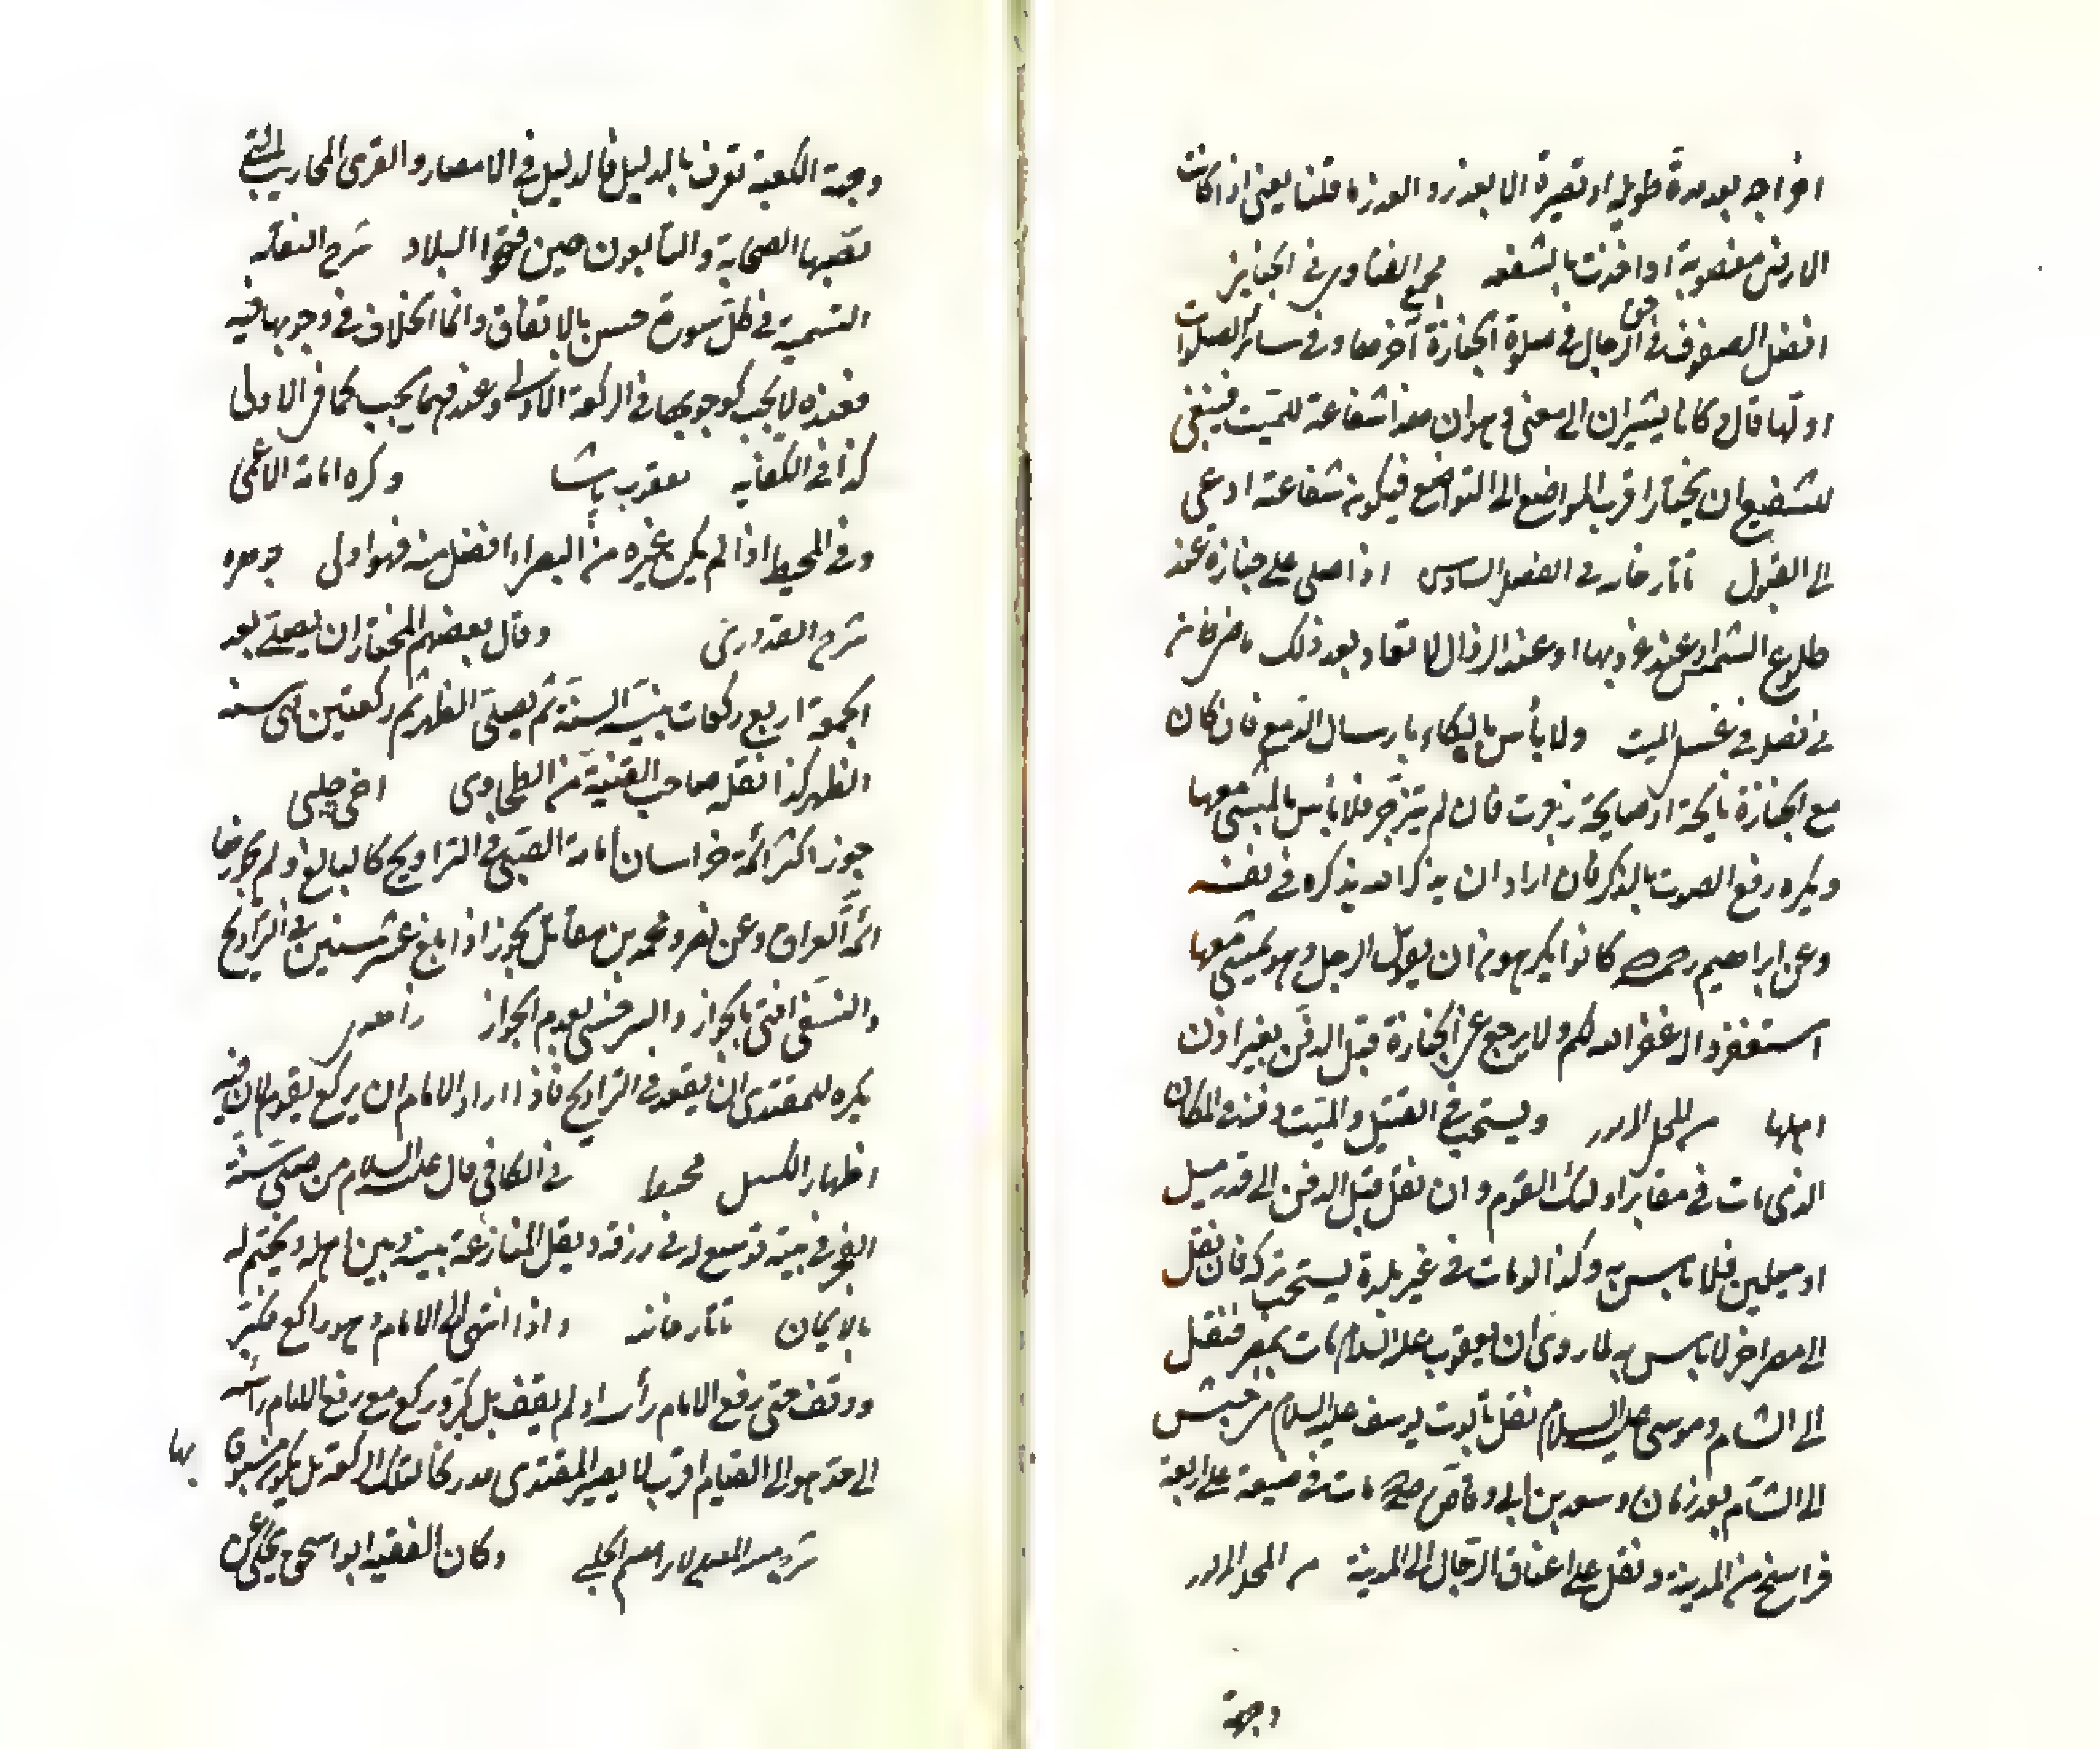 اخراجه بعد مدة طويلة او قصيرة الا بعذر والعذر ما قلنا يعني اذا كانت
الارض مغصوبة او اخذت بالشفعه مجمع الفتاوى في الجنايز
افضل الصفوف في حق الرجال في صلوة الجنازة آخرها وفي سائر الصلوات
اولها قال وكانا يشيران الى معنى وهو ان هذا شفاعة للميت فينبغي
للشفيع ان يختار اقرب المواضع الى التواضع فيكون شفاعته ادعى
الى القبول تاتارخانيه في الفصل السادس اذا صلى على جنازة عند
طلوع الشمس او عند غروبها او عند الزوال لا تعاد بعد ذلك قاضيخان
في فصل في غسل الميت ولا بأس بالبكاء بارسال الدمع فان كان
مع الجنازة نايحة او صايحة زجرت فان لم تنزجر فلا بأس بالمشي معها
ويكره رفع الصوت بالذكر فان اراد ان يذكر الله يذكره في نفسه
وعن ابراهيم رحمه الله كانوا يكرهون ان يقول الرجل وهو يمشي معها
استغفروا له غفر الله لكم ولا يرجع عن الجنازة قبل الدفن بغير اذن
اهلها من المحل المزبور ويستحب في القتيل والميت دفنه في المكان
الذي مات في مقابر اولئك القوم وان نقل قبل الدفن الى قدر ميل
او ميلين فلا بأس به وكذا لو مات في غير بلدة يستحب تركه فان نقل
الى مصر اخر لا بأس به لما روي ان يعقوب عليه السلام مات بمصر فنقل
الى الشام وموسى عليه السلام نقل تابوت يوسف عليه السلام من
الى الشام بعد زمان وسعد بن ابي وقاص مات في ضيعة على اربعة
فراسخ من المدينة ونقل على اعناق الرجال الى المدينة من المحل المزبور
وجهة
وجهة الكعبة تعرف بالدليل فالدليل في الامصار والقرى المحاريب التي
نصبها الصحابة والتابعون حين فتحوا البلاد شرح النقايه
التسمية في كل سورة حسن بالاتفاق وانما الخلاف في وجوبها فيه
فعنده لا يجب كوجوبها في الركعة الاولى وعندهما يجب كما في الاولى
كذا في الكفايه يعقوب باشا وكره امامة الاعمى
وفي المحيط اذا لم يكن غيره من البصراء افضل منه فهو اولى جوهره
شرح القدوري وقال بعضهم المختار ان يصلي بعد
الجمعة اربع ركعات بنية السنة ثم يصلي الظهر ثم ركعتين هي سنة
الظهر كذا نقل صاحب القنية من الطحاوي اخي چلبي
جوز اكثر ائمة خراسان امامة الصبي في التراويح كالبالغ ولم يجوزها
ائمة العراق وعن نصر ومحمد بن مقاتل يجوز اذا بلغ عشر سنين في التراويح
والنسفي افتى بالجواز والسرخسي بعدم الجواز زاهدي
يكره للمقتدي ان يقعد في التراويح فاذا اراد الامام ان يركع يقوم لان فيه
اظهار الكسل محيط في الكافي قال عليه السلام من صلى سنة
الفجر في بيته توسع له في رزقه ويقل المنازعة بينه وبين اهله ويختم له
بالايمان تاتارخانيه واذا انتهى الى الامام وهو راكع فكبر
ووقف حتى رفع الامام رأسه او لم يقف بل كبر وركع مع رفع الامام رأسه
الى حد هو الى القيام اقرب لا يصير المقتدي مدركا لتلك الركعة بل يكون مسبوقا
بها
لابراهيم الحلبي وكان الفقيه ابو اسحق